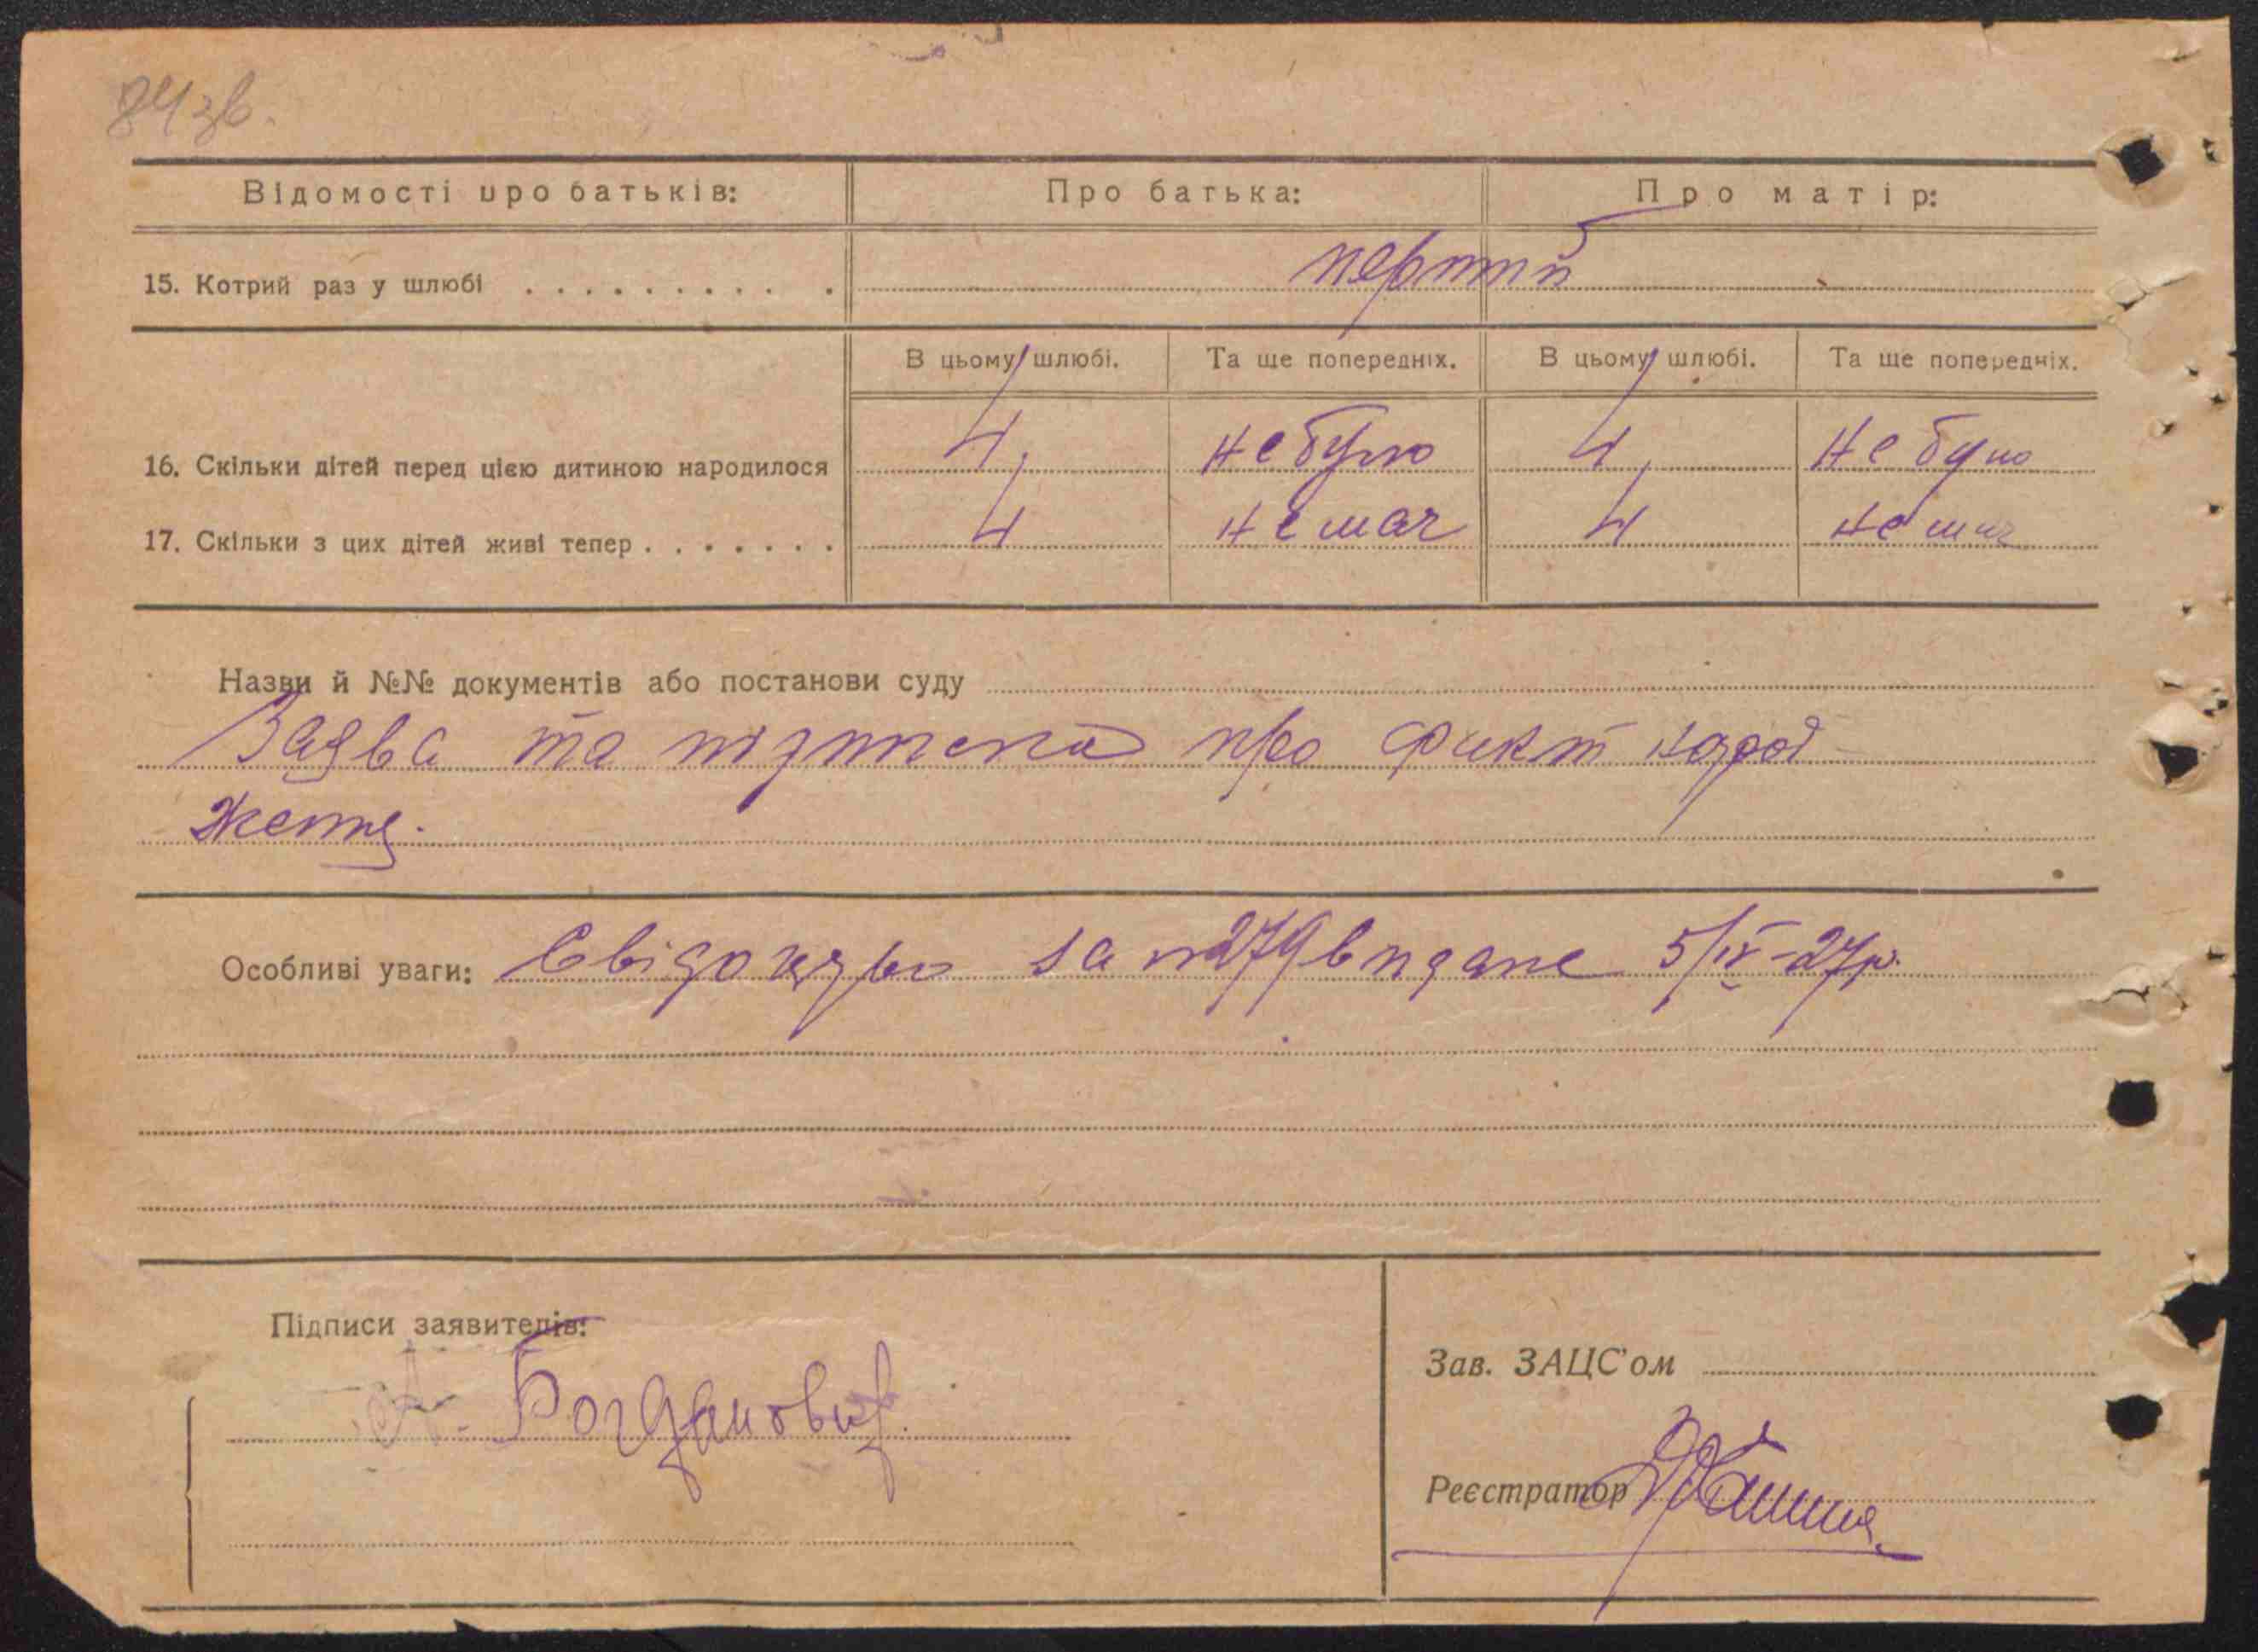 84 зв.
Відомості про батьків: Про батька: Про матір:
15. Котрий раз у шлюбі . . . . . . . . . . перший
В цьому шлюбі. Та ще попередніх. В цьому шлюбі. Та ще попередніх.
16. Скільки дітей перед цією дитиною народилося 4, не було 4, не було
17. Скільки з цих дітей живі тепер . . . . . . . 4 немає 4 немає
Назви й №№ документів або постанови суду
Заява та підписка про факт народ
ження.
Особливі уваги: Свідоцтво за №279 видане 5/IV-27р.
Підписи заявителів:
А. Богданович
Зав. ЗАЦС'ом
Реєстратор